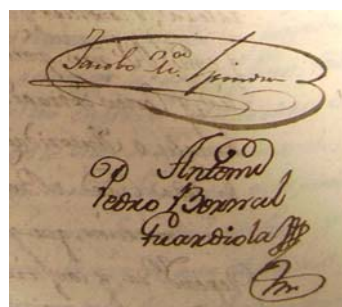 Jacobo Mª. Espinosa
Antonio
Pedro Bernal
Guardiola